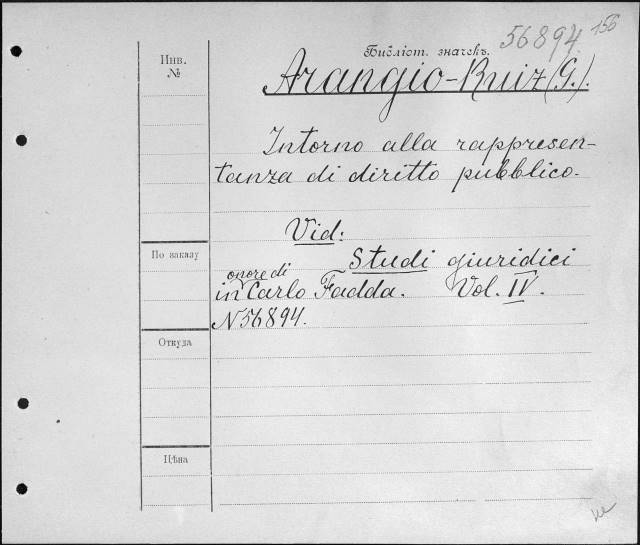 156
56894.
Инв.
№
Библіот. значекъ.
Arangio-Ruiz (G.).
Intorno alla rappresen-
tanza di diritto pubblico.
Vid:
По заказу
Studi giuridici
onore di
in Carlo Fadda. Vol. IV.
N 56894.
Откуда
Цѣна